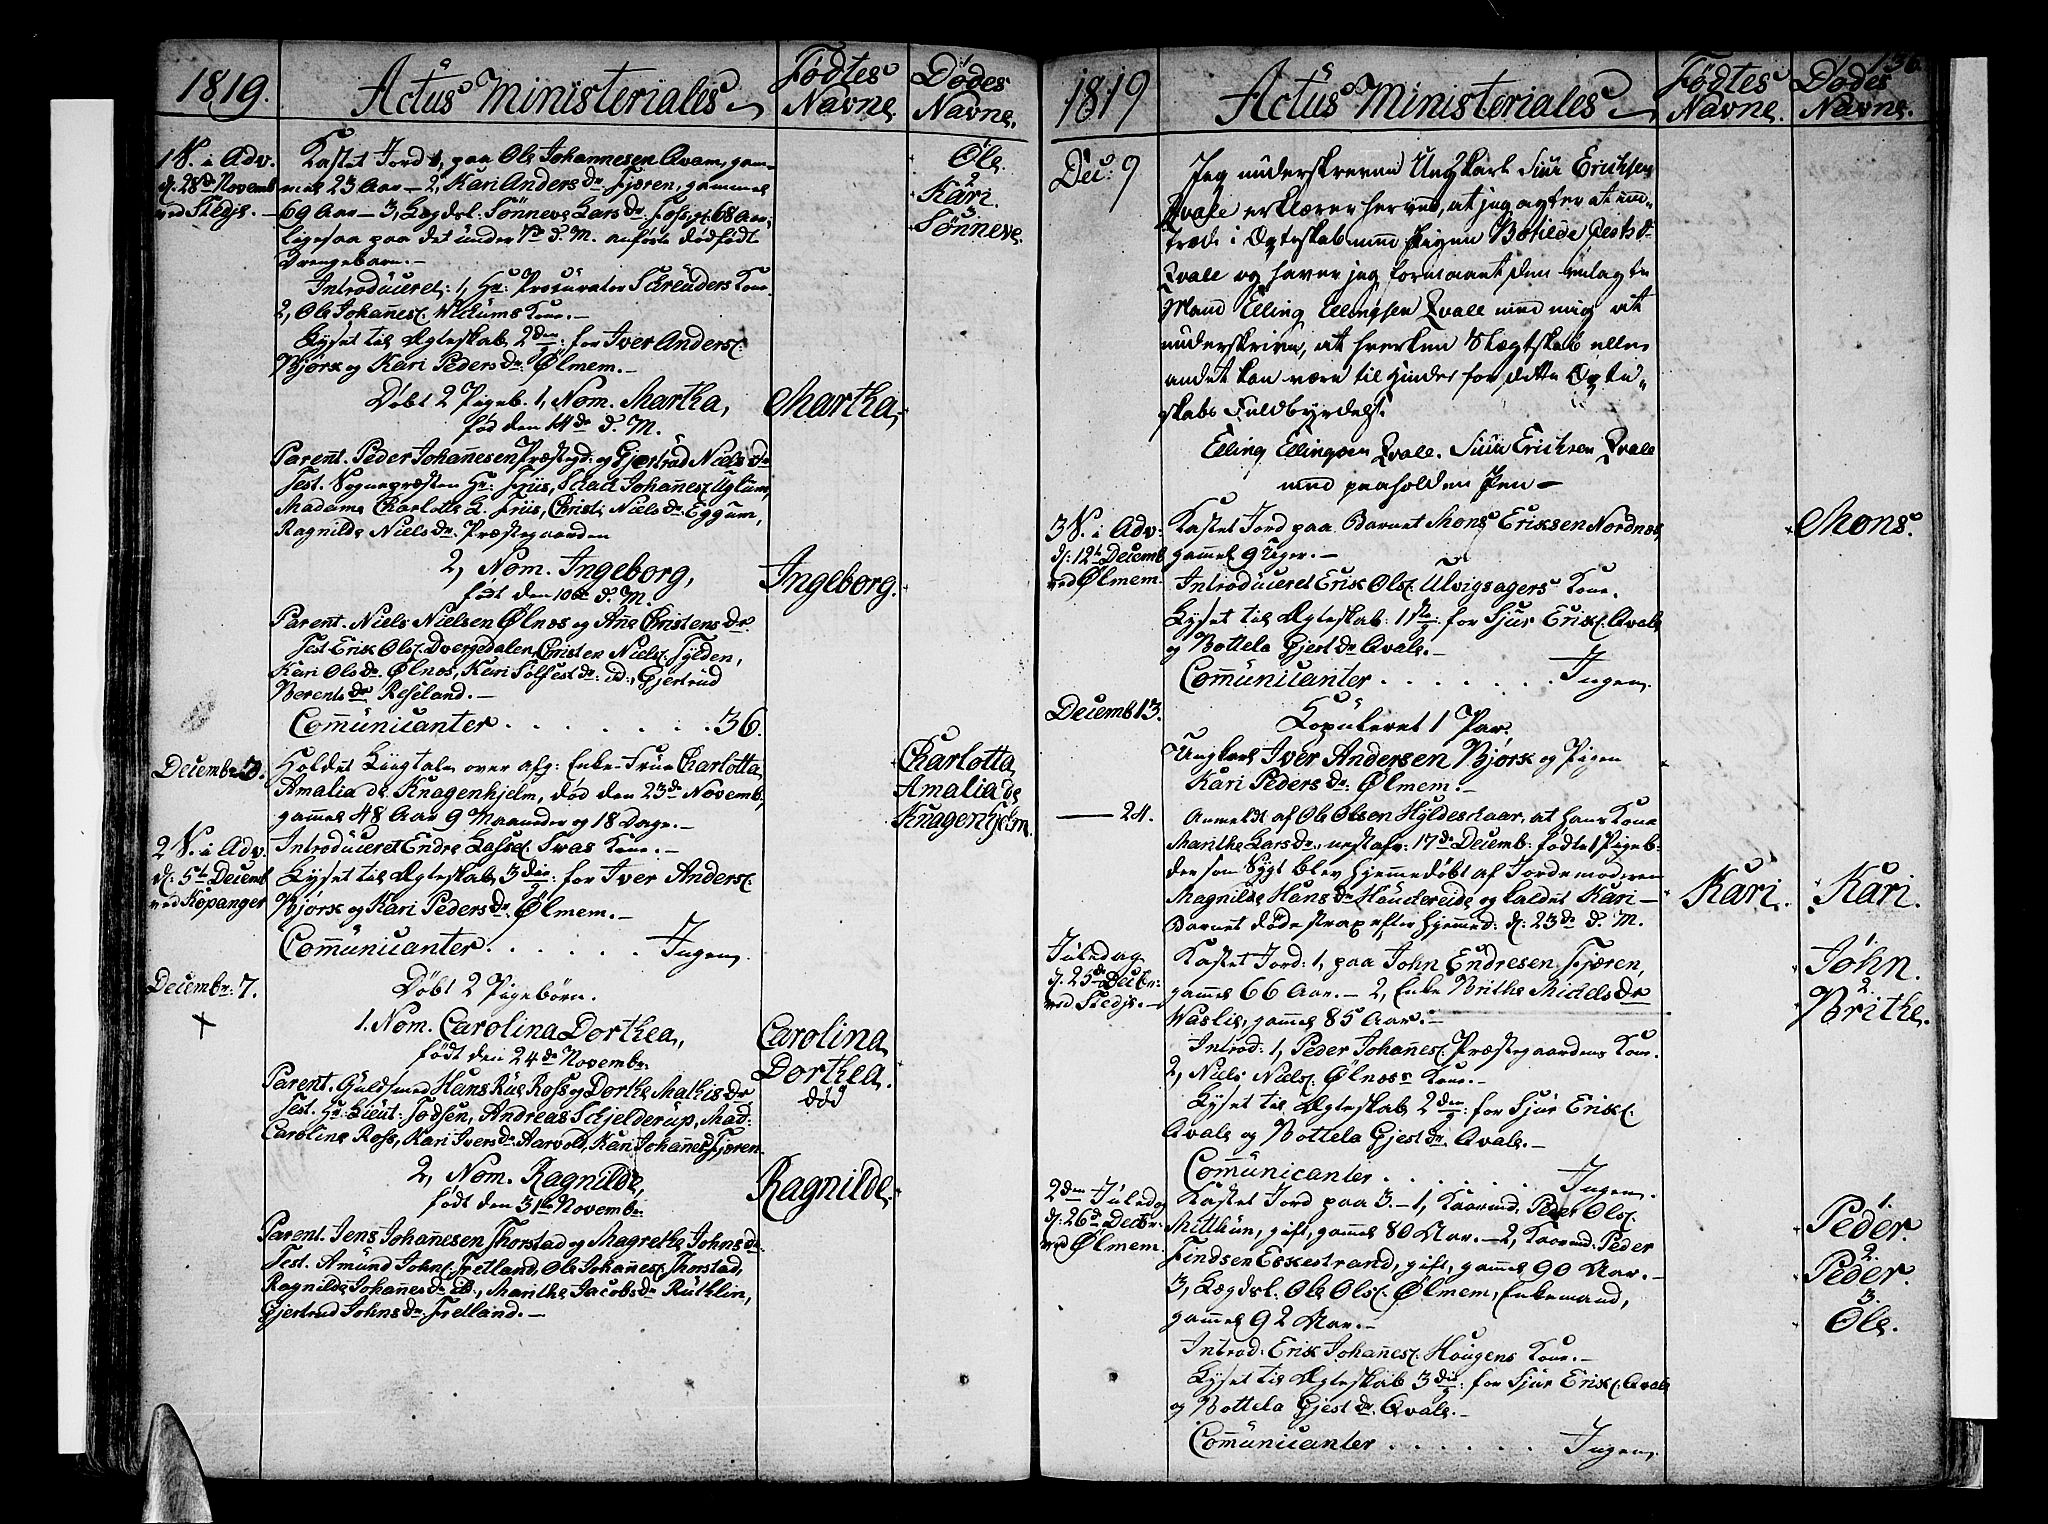 1819.
Actus Ministeriales
Fødtes
Navne.
Dødes
Navne.
1 S. i Adv.
d. 28de Novemb
ved Stedje.
Kastet Jord 1, paa Ole Johannesen Avam, gam-
mel 23 Aar — 2, Kari Andersdr. Fjæren, gammel
69 Aar — 3, Lægdsl. Sønneve Larsdr. Foss, g. 68 Aar.
ligesaa paa det under 7de d. M. anførte dødfødte
Drengebarn. —
Ole
2
Kari.
3
Sønneve.
Introduceret: 1, Hr: Procurator Schreuders Kone
2, Ole Johanes. Kone. —
Lyset til Ægteskab 2den: for Iver Anders.
Bjørk og Kari Pedersdr. Ølmem. —
Døbt 2 Pigeb. 1, Nom. Martha,
fød den 14de d. M.
Martha,
Parent. Peder Johanesen Præstegd: og Gjertrud Nielsdr
Test. Sognepræsten Hr: Friis, Johanes. Uglum,
Madame Charlotte L. Friis, Christi Nielsdr. Eggum,
Ragnilde Nielsdr. Præstegaarden
2, Nom. Ingeborg,
født den 10de d. M.
Ingeborg.
Parent. Niels Nielsen Ølnos og Ane Christensdr.
Test. Erik Ols. Dvergedalen, Christen Niels. Fylden,
Kari Olsdr. Ølnos, Kari Solfestdr: id:, Gjertrud
Berentsdr Reseland. —
Comunicanter . . . . . . . 36.
Decembr: 3.
Holdet Liigtale over afg: Enke-Frue Charlotta
Amalia de Knagenhjelm, død den 23de Novemb,
gammel 48 Aar 9 Maaneder og 18 Dage. —
Charlotta
Amalia de
Knagenhjelm.
2 S. i Adv.
d. 5te Decemb
ved Kopanger
Introduceret Endre Lasses. Kone. —
Lyset til Ægteskab 3die: for Iver Anders.
Bjørk og Kari Pedersdr. Ølmem. —
Comunicanter . . . . . Ingen.
Decembr: 7.
Døbt 2 Pigebørn.
1. Nom. Carolina Dorthea,
født den 24de Novembr.
Carolina
Dorthea.
død
Parent. Guldsmed Hans Ross og Dorthe Mathisdr
Test. Hr: Lieut: Todsen, Andreas Schjelderup, Mad:
Caroline Ross, Kari Iversdr Aarvold, Kari Johanesd Fjæren
2, Nom. Ragnilde,
født den 31te Novembr.
Ragnilde.
Parent. Jens Johanesen Thorstad og Magrethe Johnsdr
Test. Amund John. Fretland, Ole Johanes. Thorstad,
Ragnilde Johanesdr ibd., Marithe Jacobsdr Rutklin,
Gjertrud Johnsdr. Fretland. —
1819
Actus Ministeriales
Fødtes
Navne.
136.
Dødes
Navne.
Dec: 9
Jeg underskrevne Ungkarl Siur Erichsen
Qvale erklærer herved, at jeg agter at ind-
træde i Ægteskab med Pigen Botilde Giestsd
Qvale og haver jeg formaaet den vedlagte
Mand Elling Ellingsen Qvale med mig at
underskrive, at hverken Slægtskab eller
andet kan være til Hinder for dette Ægte-
skabs Fuldbyrdelse.
Elling Ellingsen Qvale. Siur Erichsen Qvale
med paaholden Pen —
3 S. i Adv:
d. 12te Decemb
ved Ølmem.
Kastet Jord paa Barnet Mons Eriksen Nordnes,
gammel 9 Uger. —
Mons.
Introduceret Erik Ols. Ulvigsagers Kone.
Lyset til Ægteskab: 1ste: for Sjur Eriks. Qvale
og Bottela Gjestdr Qvale. —
Comunicanter . . . . . . . Ingen.
Decemb 13.
Kopuleret 1 Par.
Ungkarl Iver Andersen Bjørk og Pigen
Kari Pedersdr: Ølmem. —
— 24.
Anmeldt af Ole Olsen Hyldeskaar, at hans Kone
Marithe Larsdr. nestafv: 17de Decemb: fødte 1 Pigeb-
der som Sygt blev hjemmedøbt af Jordemoderen
Magnilde Hansdr Haukereide og kaldet Kari —
Barnet døde strax efter hjemmed: d. 23de d. M.
Kari.
Kari.
Juledag
d. 25de Decbr:
ved Stedje. —
Kastet Jord: 1, paa John Endresen Fjæren,
gammel 66 Aar. — 2, Enke Brithe Mickelsdr
Waslie, gammel 85 Aar. —
1
John.
2.
Brithe.
Introd: 1, Peder Johanes. Præstegaardens Kone.
2, Niels Niels. Ølnos Kone. —
Lyset til Ægteskab 2den: for Sjur Eriks.
Qvale og Bottela Gjestdr. Qvale. —
Comunicanter . . . . . . Ingen.
2den Juledag
d. 26de Decbr:
ved Ølmem.
Kastet Jord paa 3. — 1, Kaarmd. Peder Ols.
Mitthun, gift, gammel 80 Aar. — 2, Kaarmd. Peder
Findsen Eskestrand, gift, gammel 90 Aar. —
3, Lægdsl. Ole Ols. Ølmem, Enkemand,
gammel 92 Aar. —
1.
Peder.
2.
Peder.
3.
Ole.
Introd: Erik Johanes. Haugens Kone. —
Lyset til Ægteskab 3die: for Sjur Eriks. Qvale
og Bottela Gjestdr. Qvale. —
Comunicanter . . . . . . Ingen.